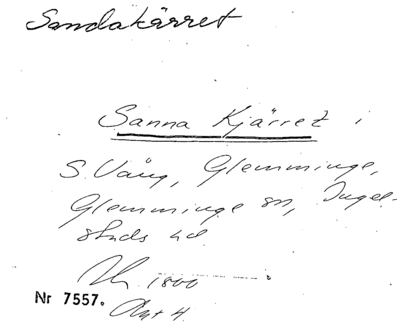 Sandakärret
Sanna Kjärret i
S. Vång, Glemminge,
Glemminge sn, Ingel-
stads hd
1800
Nr 7557.
Akt 4